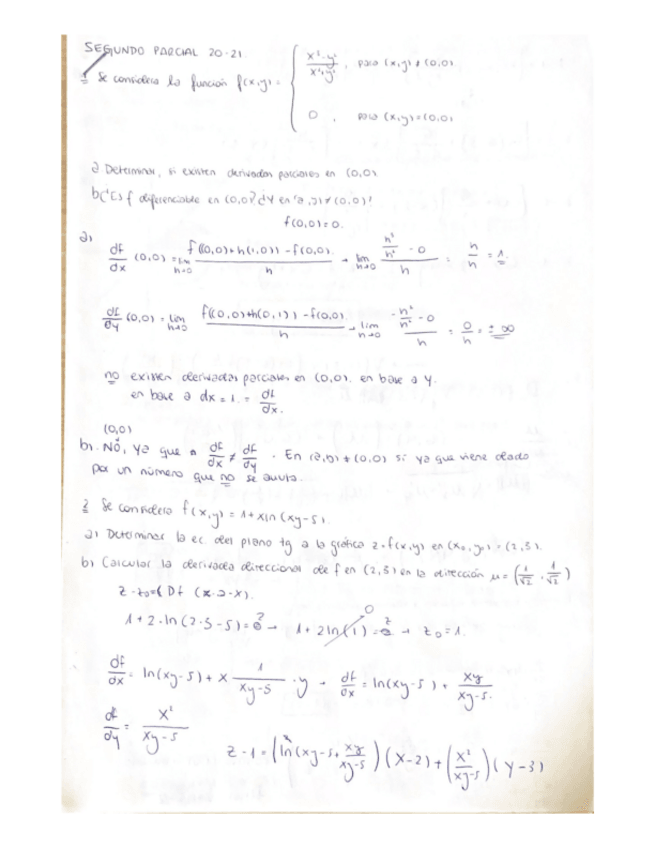 SEGUNDO PARCIAL 20-21.
1 Se considera la función f(x,y) = { , para (x,y) ≠ (0,0)
0 , para (x,y)=(0,0)
a) Determinar, si existen derivadas parciales en (0,0)
b) ¿Es f diferenciable en (0,0)? ¿Y en (a,b) ≠ (0,0)?
f(0,0)=0.
a)
df/dx (0,0) = lim h→0 f((0,0)+h(1,0)) - f(0,0) / h → lim h→0 - 0 / h = h/h = 1.
df/dy (0,0) = lim h→0 f((0,0)+h(0,1)) - f(0,0) / h → lim h→0 - 0 / h = 0/h = ± ∞
no existen derivadas parciales en (0,0). en base a y.
en base a dx = 1. = df/dx.
(0,0)
b). NO, ya que a df/dx ≠ df/dy . En (a,b) ≠ (0,0) si ya que viene dado
por un número que no se anula.
2 Se considera f(x,y) = 1+xln(xy-5).
a) Determinar la ec. del plano tg a la gráfica z=f(x,y) en (x₀,y₀) = (2,3).
b) Calcular la derivada direccional de f en (2,3) en la dirección μ = (1/√2 , 1/√2)
1+2·ln(2·3-5) = z → 1+2ln(1) = z → z₀=1.
df/dx = ln(xy-5) + x 1/xy-5 · y → df/dx = ln(xy-5) + xy/xy-5.
df/dy = x²/xy-5
z-1 = (ln(xy-5+ xy/xy-5) (x-2) + (x²/xy-5) (y-3)